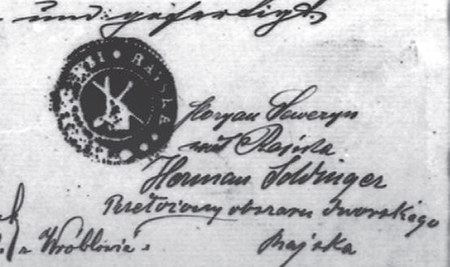 und gefertigt.
RAJSKA
Floryan Seweryn
wójt Rajska
Herman Soldinger
Przełożony obszaru Dworskiego
z Wróblowic
Rajska